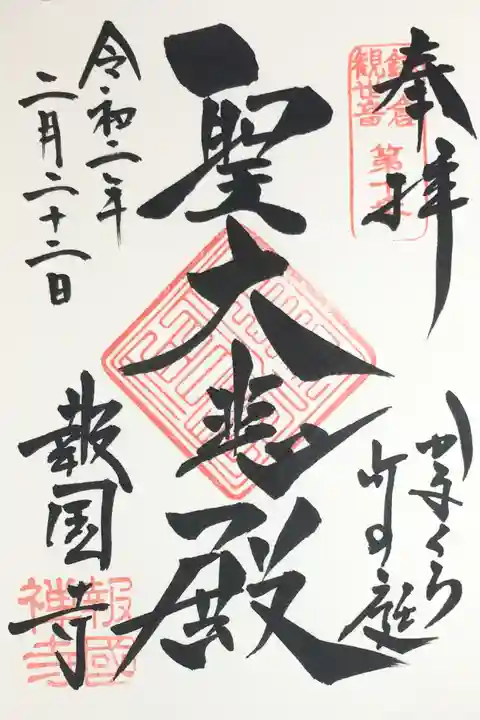 奉拝
鎌倉
観世音
第十
かまくら
竹の庭
聖大悲殿
令和二年
二月二十二日
報国寺
報國
禅寺